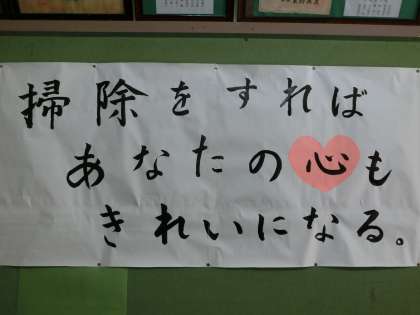 掃除をすれば
あなたの心も
きれいになる。